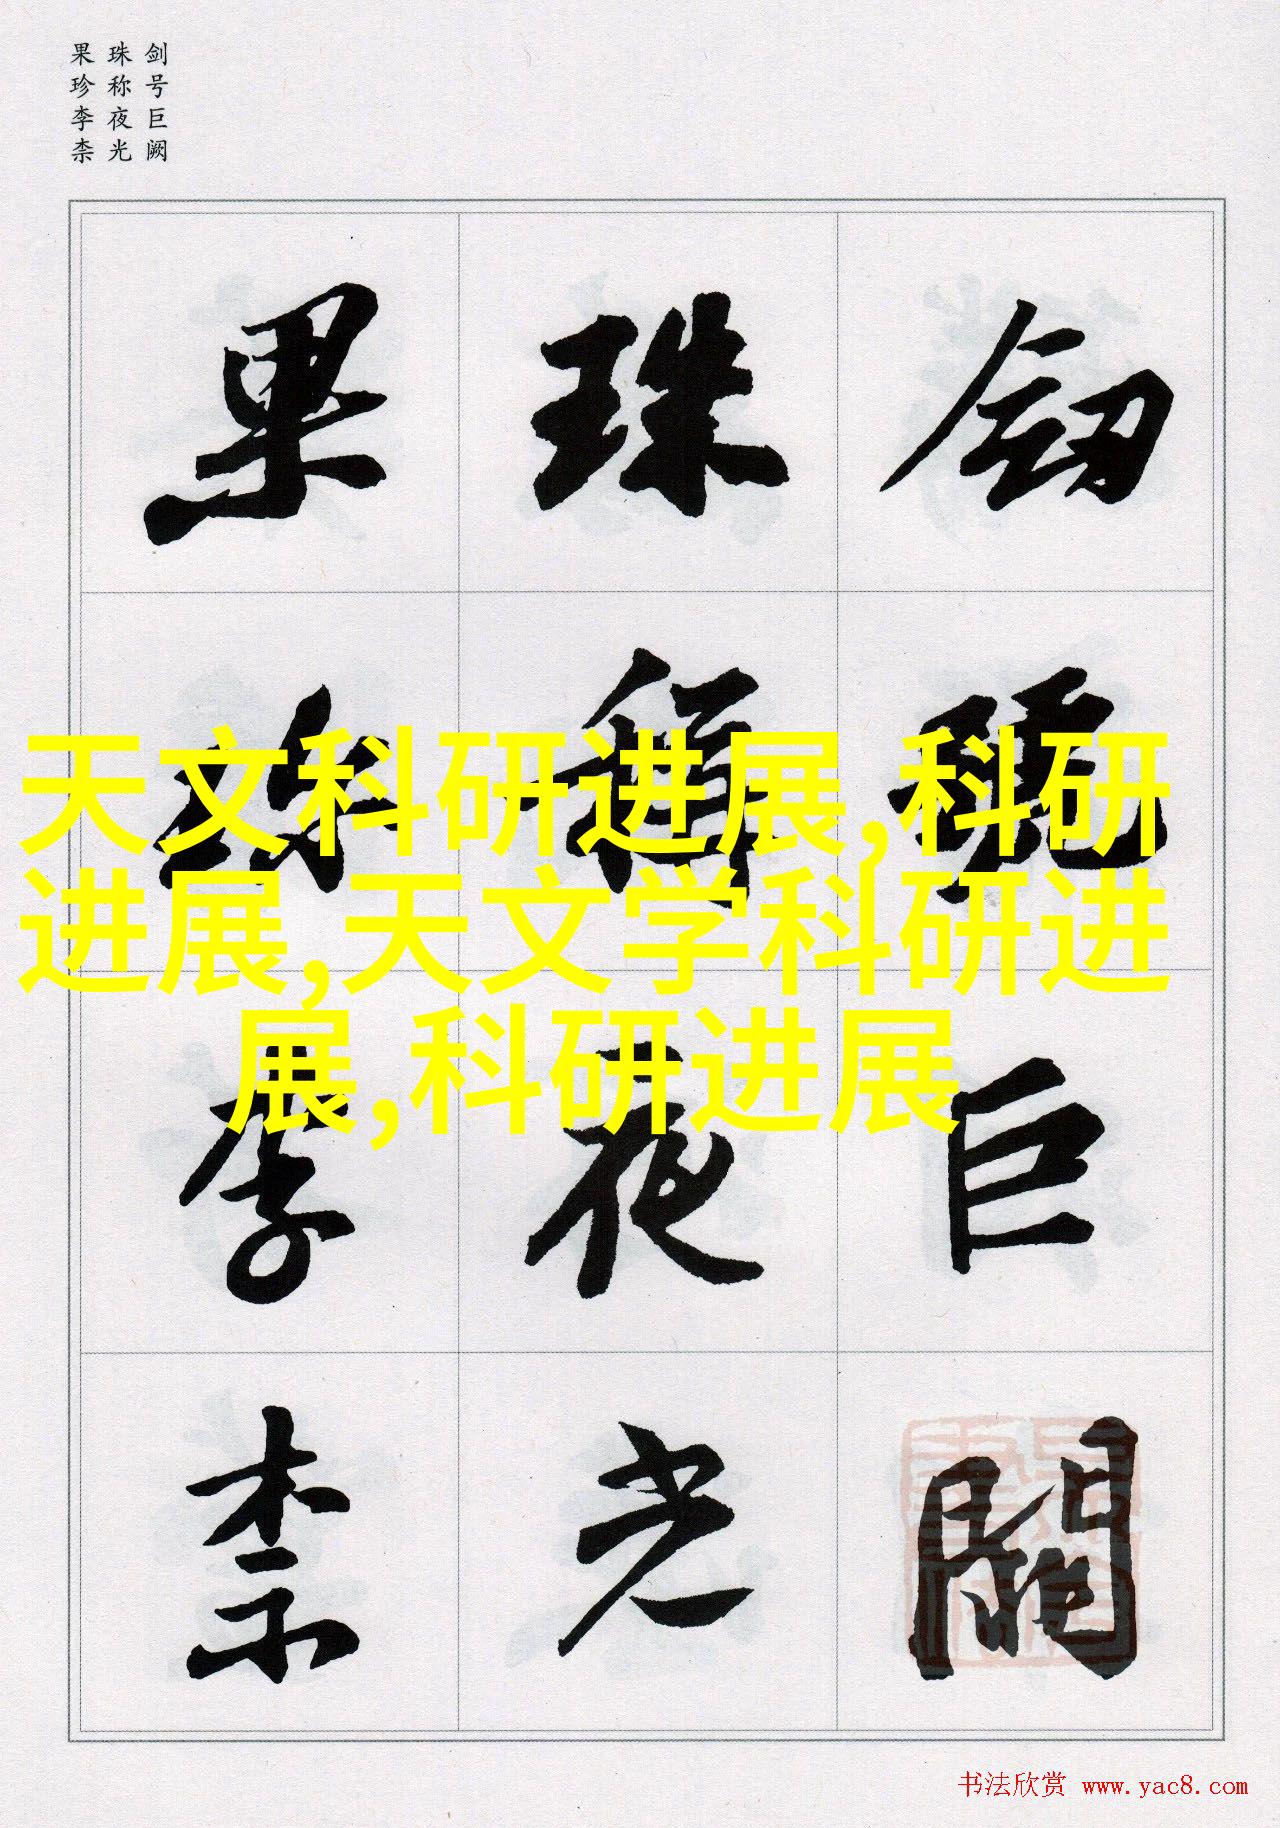 剑号巨阙
珠称夜光
果珍李柰
剑号巨阙
珠称夜光
果珍李柰
天文科研进展,科研
进展,天文学科研进
展,科研进展
书法欣赏 www.yac8.com